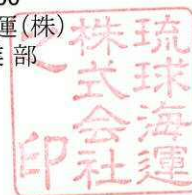 運(株)
部
琉球海運
株式会社
之印